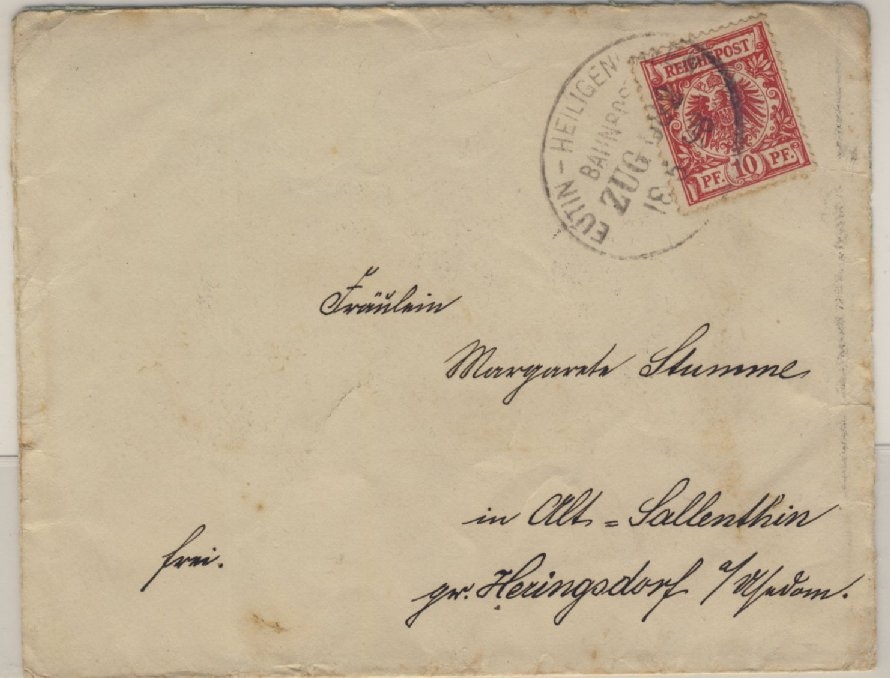 EUTIN - HEILIGEN
BAHNPOS
ZUG
18 5
REICHSPOST
PF. 10 PF.
Fräulein
Margarete Stumme
in Alt=Sallenthin
frei.
pr. Heringsdorf a/Usedom.